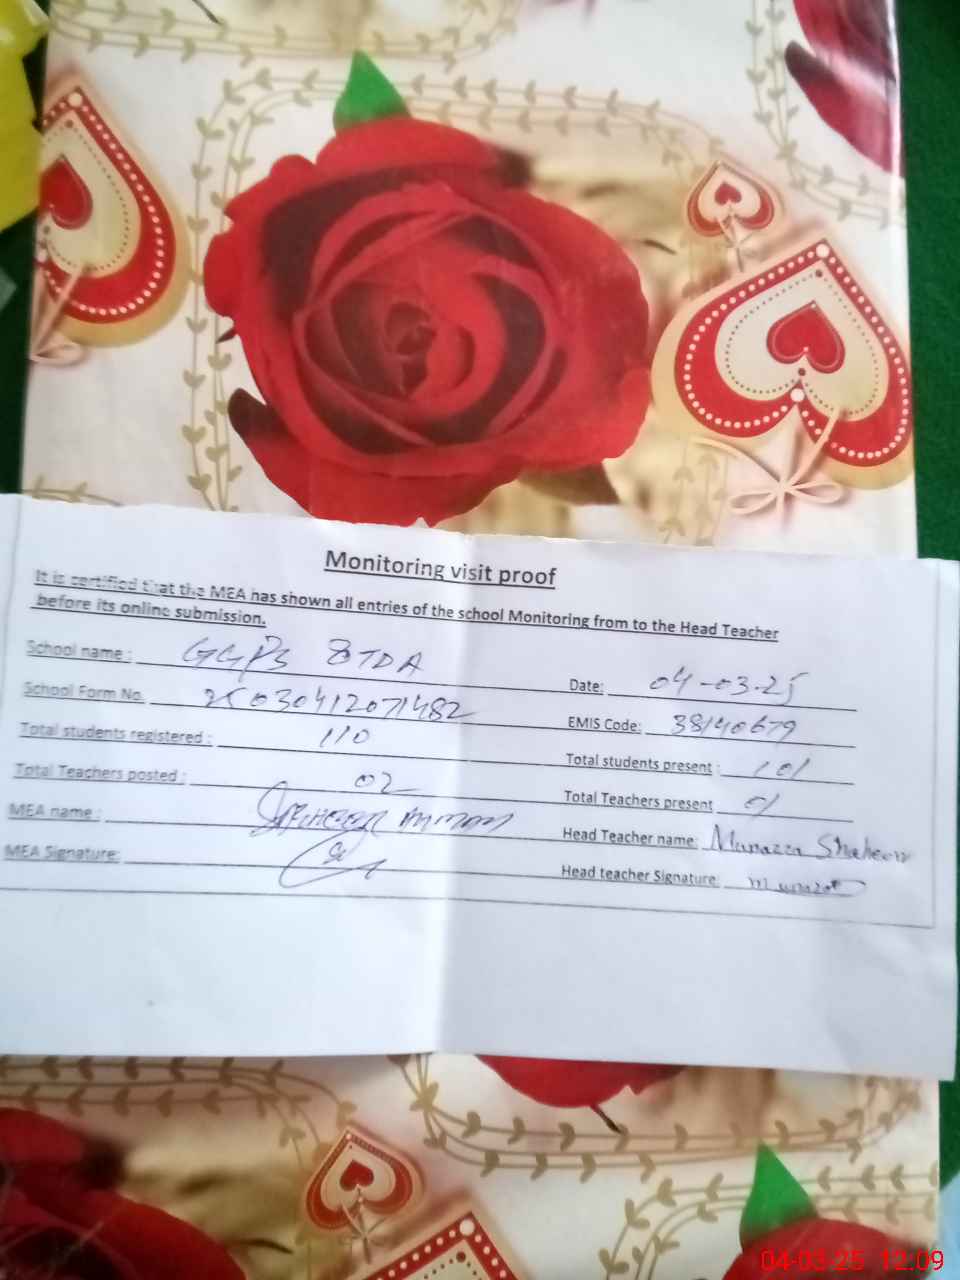 Monitoring visit proof
It is certified that the MEA has shown all entries of the school Monitoring from to the Head Teacher
before its online submission.
School name : GGPS 8TDA Date: 04-03-25
School Form No. 25030412071482 EMIS Code: 38140679
Total students registered : 110 Total students present : 101
Total Teachers posted : 02 Total Teachers present 01
MEA name : Head Teacher name: Munazza Shaheen
MEA Signature: Head teacher Signature:
04-03-25 12.09